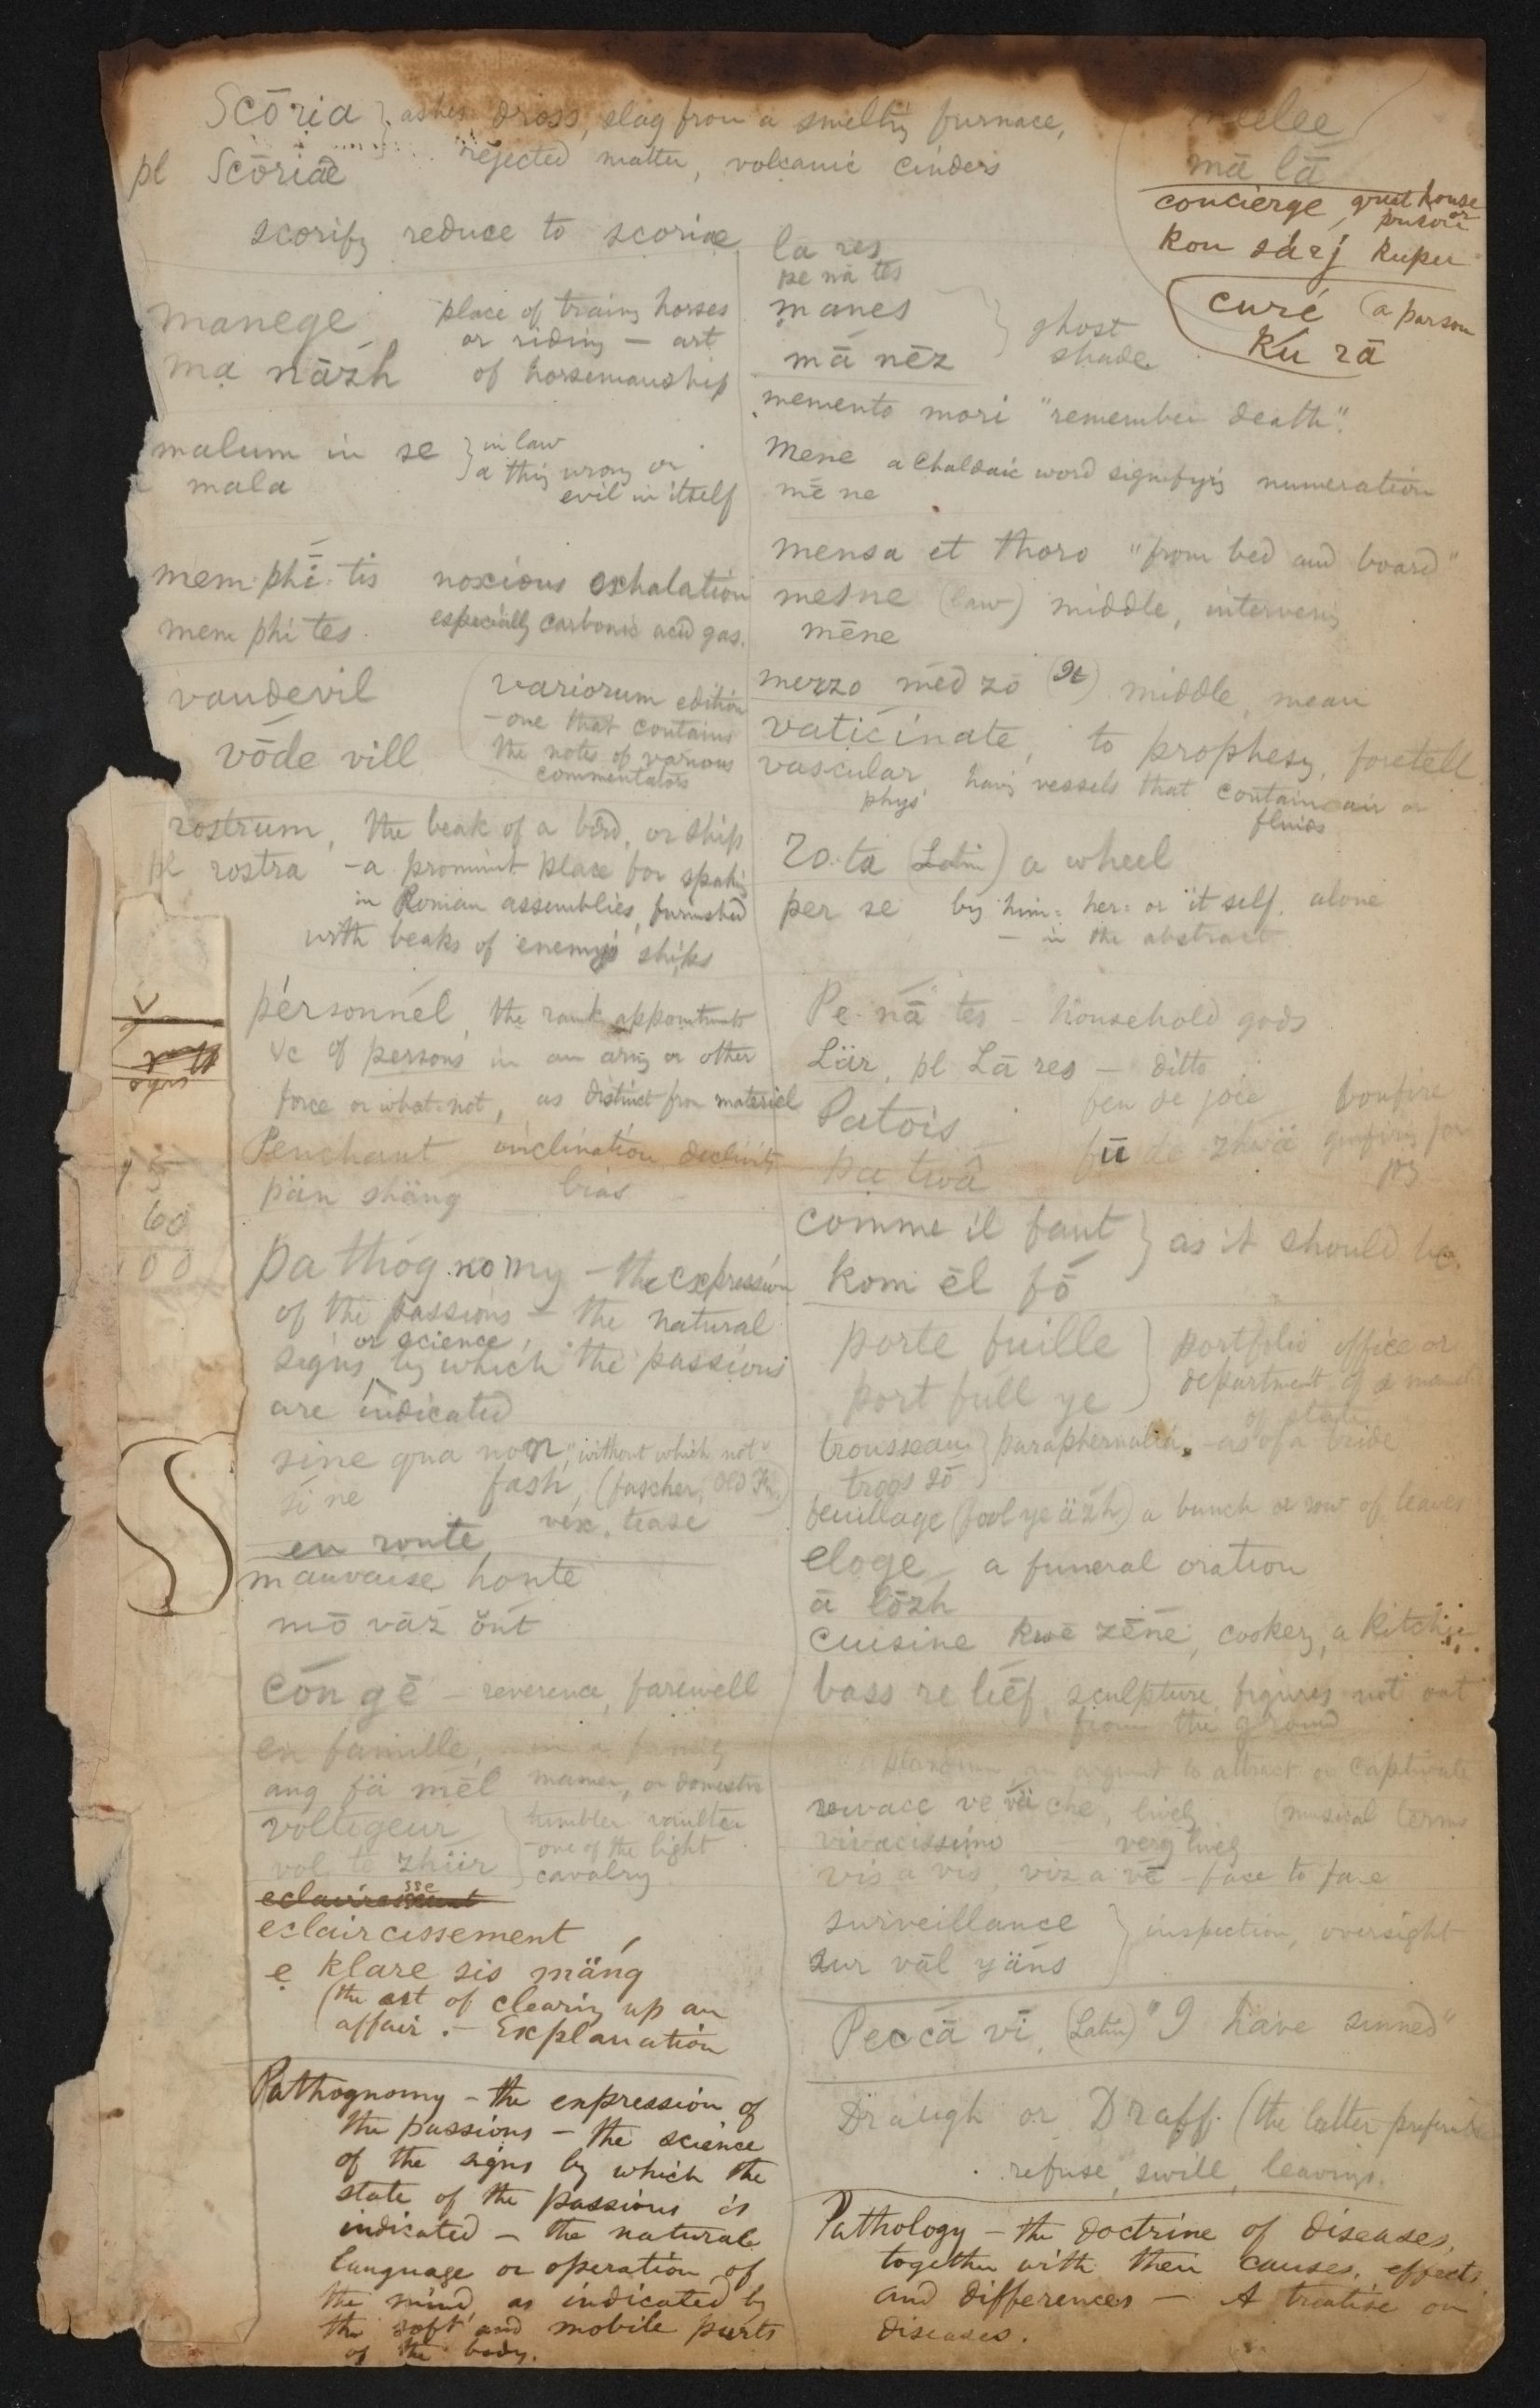 Scōria } ashes dross, slag from a smeltig furnace,
pl Scōriae rejected matter, volcanic cinders
scorify reduce to scoriae
melee
mā lā
concierge, great house or prison
kon sárj keeper
curé (a parson
Ku rā
manege place of traing horses
or riding — art
ma názh of horsemanship
malum in se } in law
a thig wrong or
mala evil in itself
mem phī tis noxious exhalation
mem phi tes especially carbonic acid gas.
vaudevil
vōde vill
variorum edition
- one that contains
the notes of various
commentators
rostrum, the beak of a bird, or ship
pl rostra - a prominnt place for spakig
in Roman assemblies, furnished
with beaks of enemy's ships
pérsonnél, the rank appointments
&c of persons in an army or other
force or what-not, as distinct from materiel
Penchant inclination declivity
pän shäng bias
pa thog no my - the expression
of the passions - the natural
or science
signs by which the passions
are indicated
sine qua non, "without which not"
sī ne fash, (fascher, Old Fr.)
vex, tease
en route
mauvaise honte
mō vāz ōnt
cón gē - reverence, farewell
en famille, in a family
ang fä mēl manner, or domestic
voltigeur } tumbler vaulter
- one of the light
vol te zhür cavalry
eclaircissement
e klare sis mäng
(the act of clearig up an
affair. — Explanation
Pathognomy - the expression of
the passions - the science
of the signs by which the
state of the passions is
indicated - the natural
language or operation of
the mind, as indicated by
the soft and mobile parts
of the body.
la res
pe nā tes
manes } ghost
mā nēz shade
memento mori "remember death".
Mene a Chaldaic word signifyig numeration
mē ne
mensa et thoro "from bed and board"
mesne (law) middle, intervenig
mēne
mezzo med zō (It) middle, mean
vaticinate, to prophesy, foretell
vascular, havig vessels that contain air or
phys fluids
Ro.ta (Latin) a wheel
per se by him= her= or itself. alone
- in the abstract
Pe.nā tes - household gods
Lär, pl Lā res - ditto
Patois feu de joie bonfire
pa twâ fū de zhwä gunfiring for
joy
comme il faut } as it should be.
kom ēl fō
porte fuille } portfolio office or
port full ye department of a
of state
trousseau } paraphernalia, - as of a bride
troos sō
feuillage (fool ye äzh) a bunch or row of leaves
eloge - a funeral oration
ā lōzh
cuisine kwē zēne, cookery, a kitchin.
bass re liēf, sculpture figures not out
from the ground
an argument to attract or captivate
vivace ve vä che, lively (musical terms
vivacissimo very lively
vis a vis, viz a vē - face to face
surveillance } inspection, oversight
sur vāl yäns
Peccā vī, (Latin) "I have sinned"
Draugh or Draff. (the latter preferable
refuse, swill, leavings.
Pathology - the doctrine of diseases,
together with their causes, effects
and differences - A treatise on
diseases.
60
00